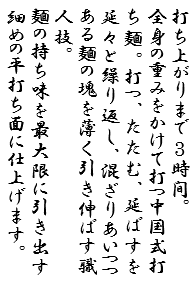 打ち上がりまで３時間。
全身の重みをかけて打つ中国式打
ち麺。打つ、たたむ、延ばすを
延々と繰り返し、混ざりあいつつ
ある麺の塊を薄く引き伸ばす職
人技。
麺の持ち味を最大限に引き出す
細めの平打ち面に仕上げます。